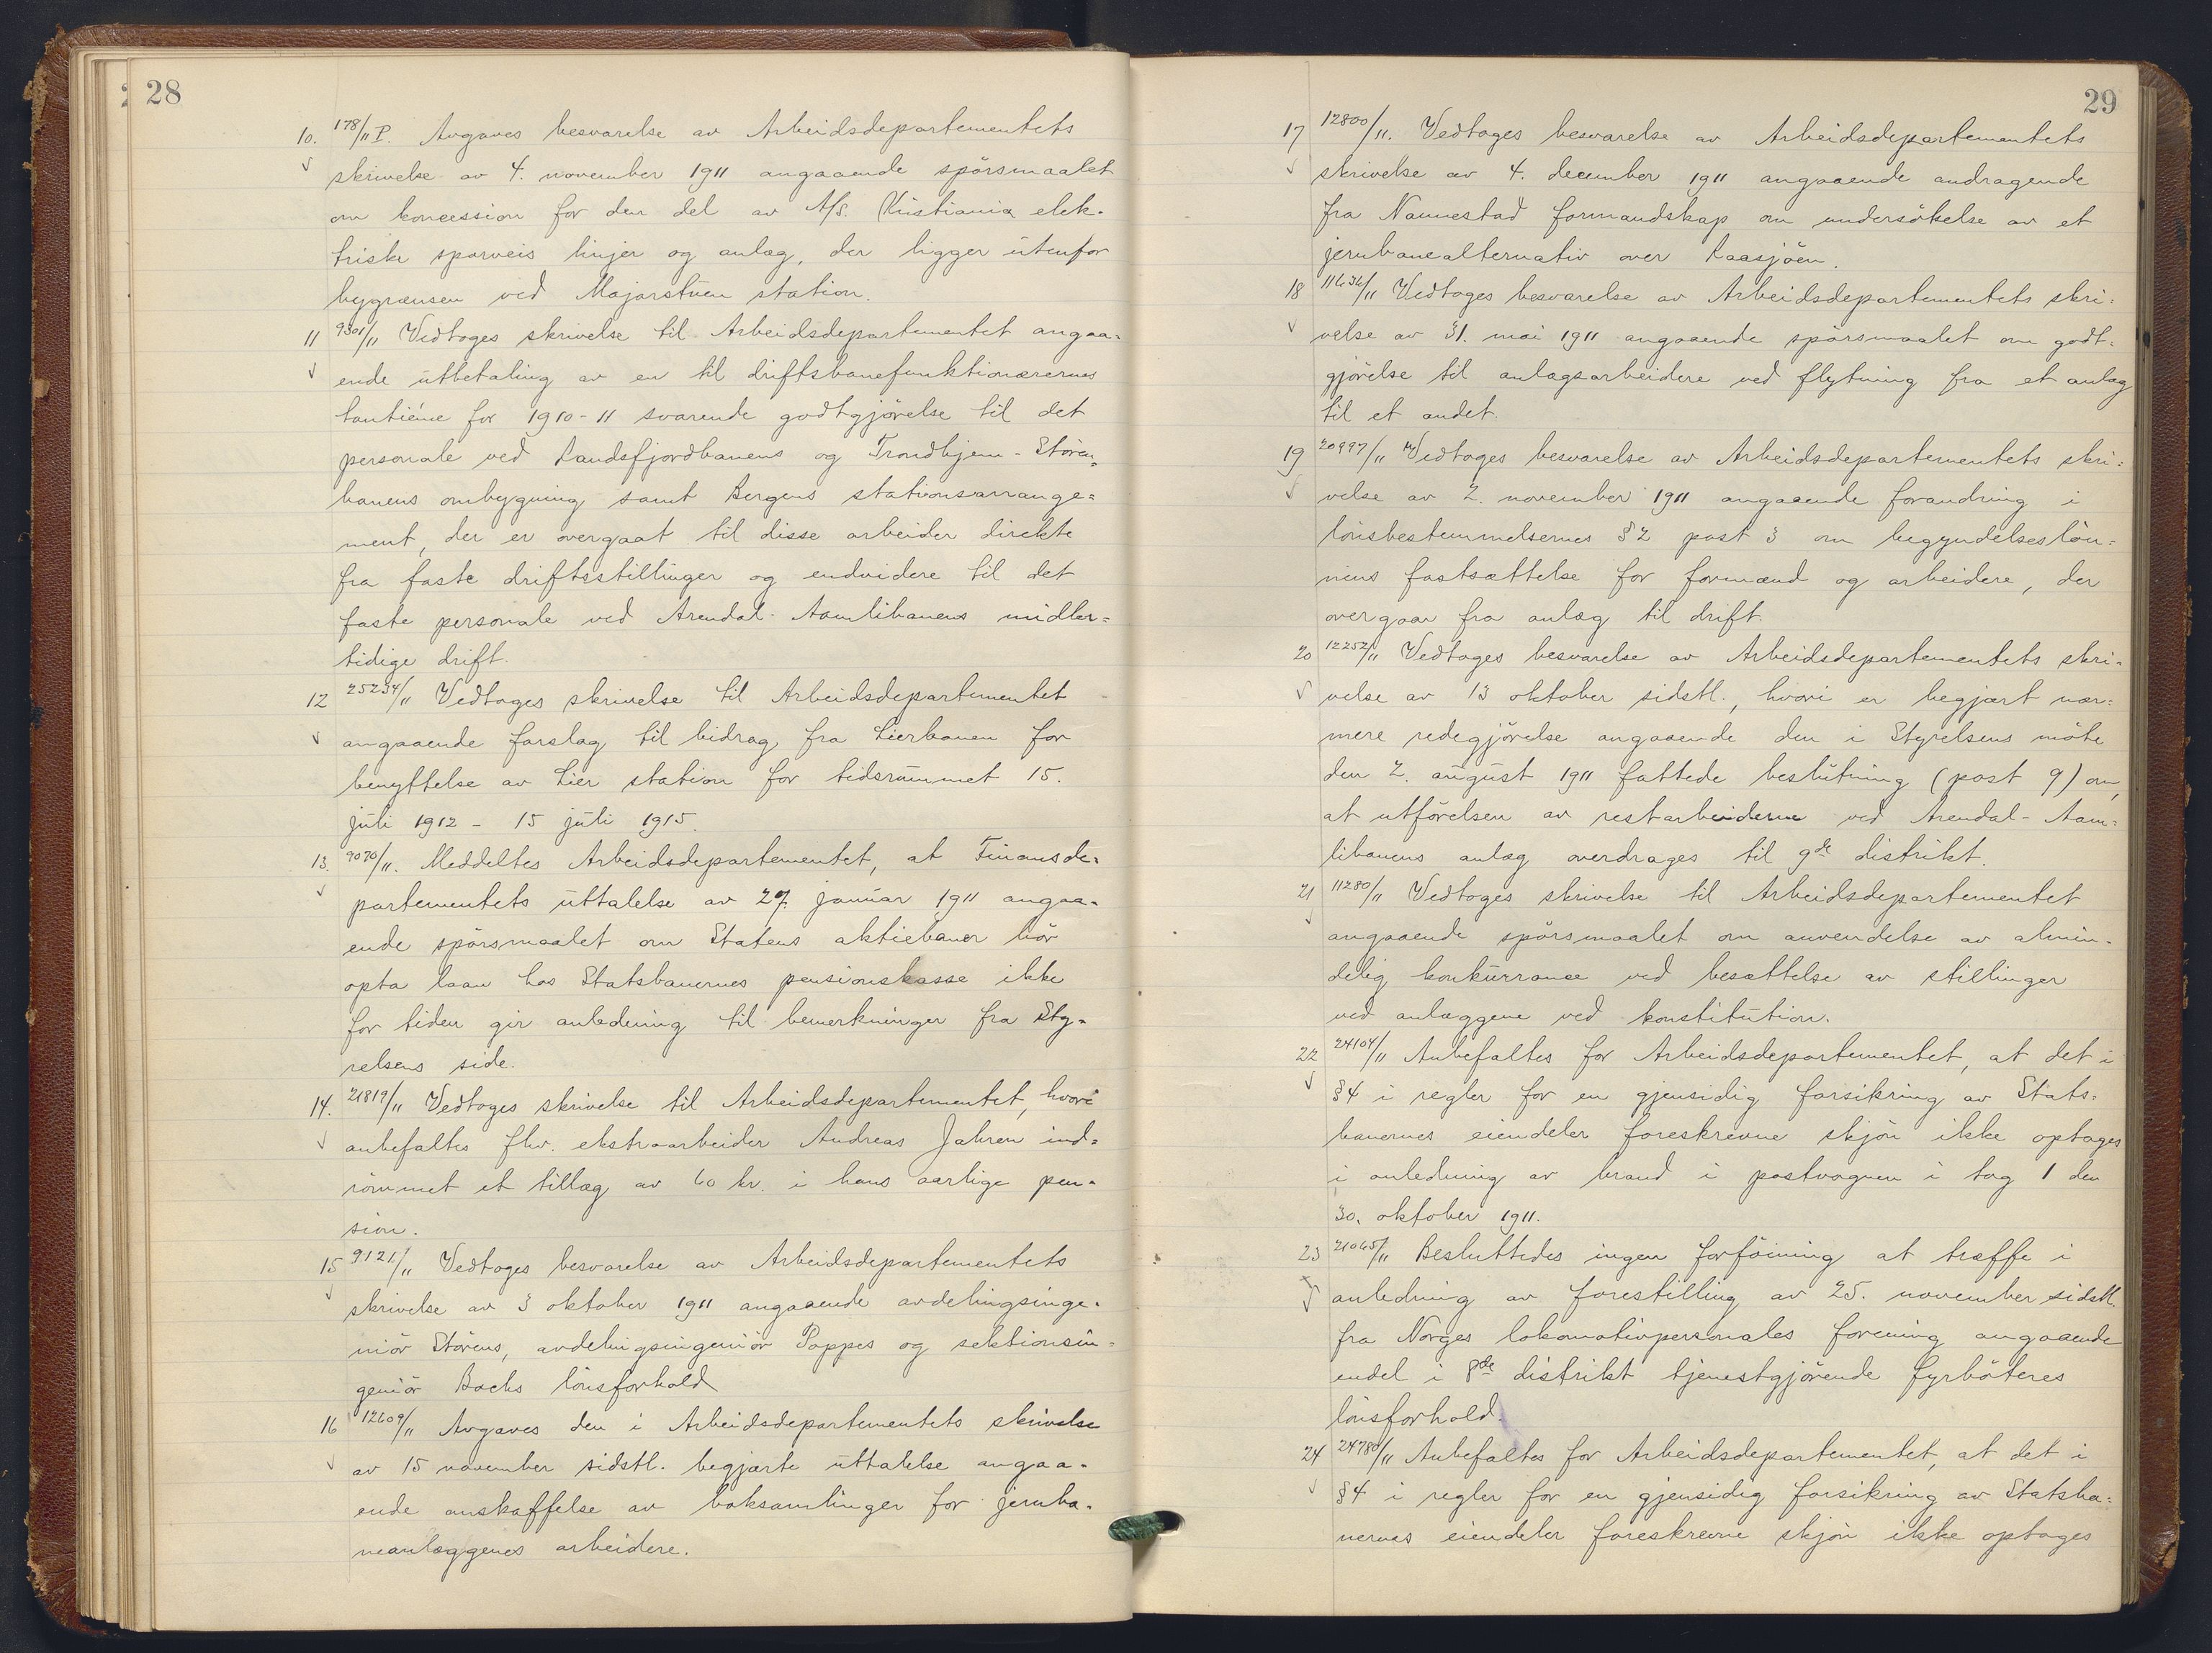 28
10. 178/11 P. Avgaves besvarelse av Arbeidsdepartementets
skrivelse av 4. november 1911 angaaende spörsmaalet
om koncession for den del av A/S. Kristiania elek-
triske sporveis linjer og anlæg, der ligger utenfor
bygrænsen ved Majorstuen station.
11 9301/11 Vedtoges skrivelse til Arbeidsdepartementet angaa-
ende utbetaling av en til driftsbanefunktionærernes
tantiéme for 1910-11 svarende godtgjörelse til det
personale ved Randsfjordbanens og Trondhjem-Stören-
banens ombygning samt Bergens stationsarrange-
ment, der er overgaat til disse arbeider direkte
fra faste driftsstillinger og endvidere til det
faste personale ved Arendal-Aamlibanens midler-
tidige drift.
12 25234/11 Vedtoges skrivelse til Arbeidsdepartementet
angaaende forslag til bidrag fra Lierbanen for
benyttelse av Lier station for tidsrummet 15.
juli 1912 - 15 juli 1915.
13. 9070/11. Meddeltes Arbeidsdepartementet, at Finansde-
partementets uttalelse av 27. januar 1911 angaa-
ende spörsmaalet om Statens aktiebaner bör
opta laan hos Statsbanernes pensionskasse ikke
for tiden gir anledning til bemerkninger fra Sty-
relsens side.
14. 21819/11 Vedtoges skrivelse til Arbeidsdepartementet, hvori
anbefaltes fhv. ekstraarbeider Andreas Jahren ind-
römmet et tillæg av 60 kr. i hans aarlige pen-
sion.
15 9121/11 Vedtoges besvarelse av Arbeidsdepartementets
skrivelse av 3 oktober 1911 angaaende avdelingsinge-
niör Störens, avdelingsingeniör Poppes og sektionsin-
geniör Bachs lönsforhold
16 12609/11 Avgaves den i Arbeidsdepartementets skrivelse
av 15 november sidstl. begjærte uttalelse angaa-
ende anskaffelse av boksamlinger for jernba-
neanlæggenes arbeidere.
29
17 12800/11. Vedtoges besvarelse av Arbeidsdepartementets
skrivelse av 4. december 1911 angaaende andragende
fra Nannestad formandskap om undersökelse av et
jernbanealternativ over Raasjöen.
18 11636/11 Vedtoges besvarelse av Arbeidsdepartementets skri-
velse av 31. mai 1911 angaaende spörsmaalet om godt-
gjörelse til anlægsarbeidere ved flytning fra et anlæg
til et andet.
19 20997/11 Vedtoges besvarelse av Arbeidsdepartementets skri-
velse av 2. november 1911 angaaende forandring i
lönsbestemmelsernes §2 post 3 om begyndelseslön-
nens fastsættelse for formænd og arbeidere, der
overgaar fra anlæg til drift.
20 12252/11 Vedtoges besvarelse av Arbeidsdepartementets skri-
velse av 13 oktober sidstl., hvori er begjært nær-
mere redegjörelse angaaende den i Styrelsens möte
den 2. august 1911 fattede beslutning (post 9) om,
at utförelsen av restarbeiderne ved Arendal-Aam-
libanens anlæg overdrages til 9de distrikt.
21 11280/11 Vedtoges skrivelse til Arbeidsdepartementet
angaaende spörsmaalet om anvendelse av almin-
delig konkurranse ved besættelse av stillinger
ved anlæggene ved konstitution.
22 24104/11 Anbefaltes for Arbeidsdepartementet, at det i
§4 i regler for en gjensidig forsikring av Stats-
banernes eiendeler foreskrevne skjön ikke optages
i anledning av brand i postvognen i tog 1 den
30. oktober 1911.
23 21065/11 Besluttedes ingen forföining at træffe i
anledning av forestilling av 25. november sidstl.
fra Norges lokomotivpersonales forening angaaende
endel i 8de distrikt tjenestgjörende fyrböteres
lönsforhold.
24 24780/11 Anbefaltes for Arbeidsdepartementet, at det i
§4 i regler for en gjensidig forsikring av Statsba-
nernes eiendeler foreskrevne skjön ikke optages